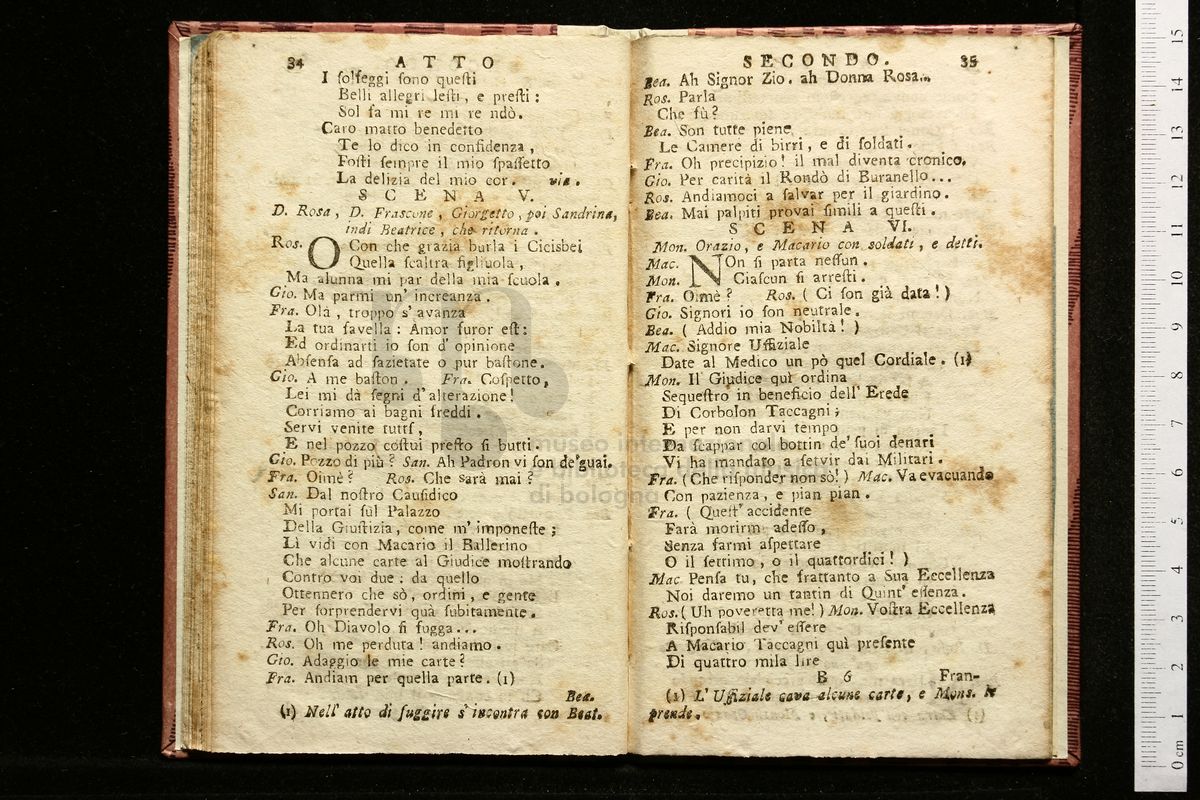 34 ATTO
I ſolfeggi ſono queſti
Belli allegri leſti, e preſti:
Sol fa mi re mi re ndò.
Caro matto benedetto
Te lo dico in confidenza,
Foſti ſempre il mio ſpaſſetto
La delizia del mio cor. via.
SCENA V.
D. Rosa, D. Frascone, Giorgetto, poi Sandrina,
indi Beatrice, che ritorna.
Ros. O Con che grazia burla i Cicisbei
Quella ſcaltra figliuola,
Ma alunna mi par della mia ſcuola.
Gio. Ma parmi un' increanza.
Fra. Olà, troppo s' avanza
La tua favella: Amor furor eſt:
Ed ordinarti io ſon d' opinione
Abſenſa ad ſazietate o pur baſtone.
Gio. A me baſton. Fra. Coſpetto,
Lei mi dà ſegni d' alterazione!
Corriamo ai bagni freddi.
Servi venite tutti,
E nel pozzo coſtui preſto ſi butti.
Gio. Pozzo di più? San. Ah Padron vi ſon de' guai.
Fra. Oimè? Ros. Che sarà mai?
San. Dal noſtro Cauſidico
Mi portai ſul Palazzo
Della Giuſtizia, come m' imponeſte;
Lì vidi con Macario il Ballerino
Che alcune carte al Giudice moſtrando
Contro voi due: da quello
Ottennero che sò, ordini, e gente
Per ſorprendervi quà ſubitamente.
Fra. Oh Diavolo ſi fugga...
Ros. Oh me perduta! andiamo.
Gio. Adaggio le mie carte?
Fra. Andiam per quella parte. (1)
Bea.
(1) Nell' atto di fuggire s' incontra con Beat.
SECONDO. 35
Bea. Ah Signor Zio. ah Donna Rosa...
Ros. Parla
Che fù?
Bea. Son tutte piene
Le Camere di birri, e di ſoldati.
Fra. Oh precipizio! il mal diventa cronico.
Gio. Per carità il Rondò di Buranello...
Ros. Andiamoci a ſalvar per il giardino.
Bea. Mai palpiti provai ſimili a queſti.
SCENA VI.
Mon. Orazio, e Macario con soldati, e detti.
Mac. NOn ſi parta neſſun.
Mon. Ciaſcun ſi arreſti.
Fra. Oimè? Ros. ( Ci ſon già data!)
Gio. Signori io ſon neutrale.
Bea. ( Addio mia Nobiltà! )
Mac. Signore Uffiziale
Date al Medico un pò quel Cordiale. (1)
Mon. Il Giudice quì ordina
Sequeſtro in beneficio dell' Erede
Di Corbolon Taccagni;
E per non darvi tempo
Da ſcappar col bottin de' ſuoi denari
Vi ha mandato a ſetvir dai Militari.
Fra. ( Che riſponder non sò!) Mac. Va evacuando
Con pazienza, e pian pian.
Fra. ( Queſt' accidente
Farà morirme adeſſo,
Senza farmi aſpettare
O il ſettimo, o il quattordici! )
Mac Penſa tu, che frattanto a Sua Eccellenza
Noi daremo un tantin di Quint' eſſenza.
Ros. ( Uh poveretta me!) Mon. Voſtra Eccellenza
Riſponſabil dev' eſſere
A Macario Taccagni quì preſente
Di quattro mila lire
B 6 Fran-
(1) L' Uffiziale cava alcune carte, e Mons. le
prende.
museo
biblioteca
di bologna
0 cm 1 2 3 4 5 6 7 8 9 10 11 12 13 14 15